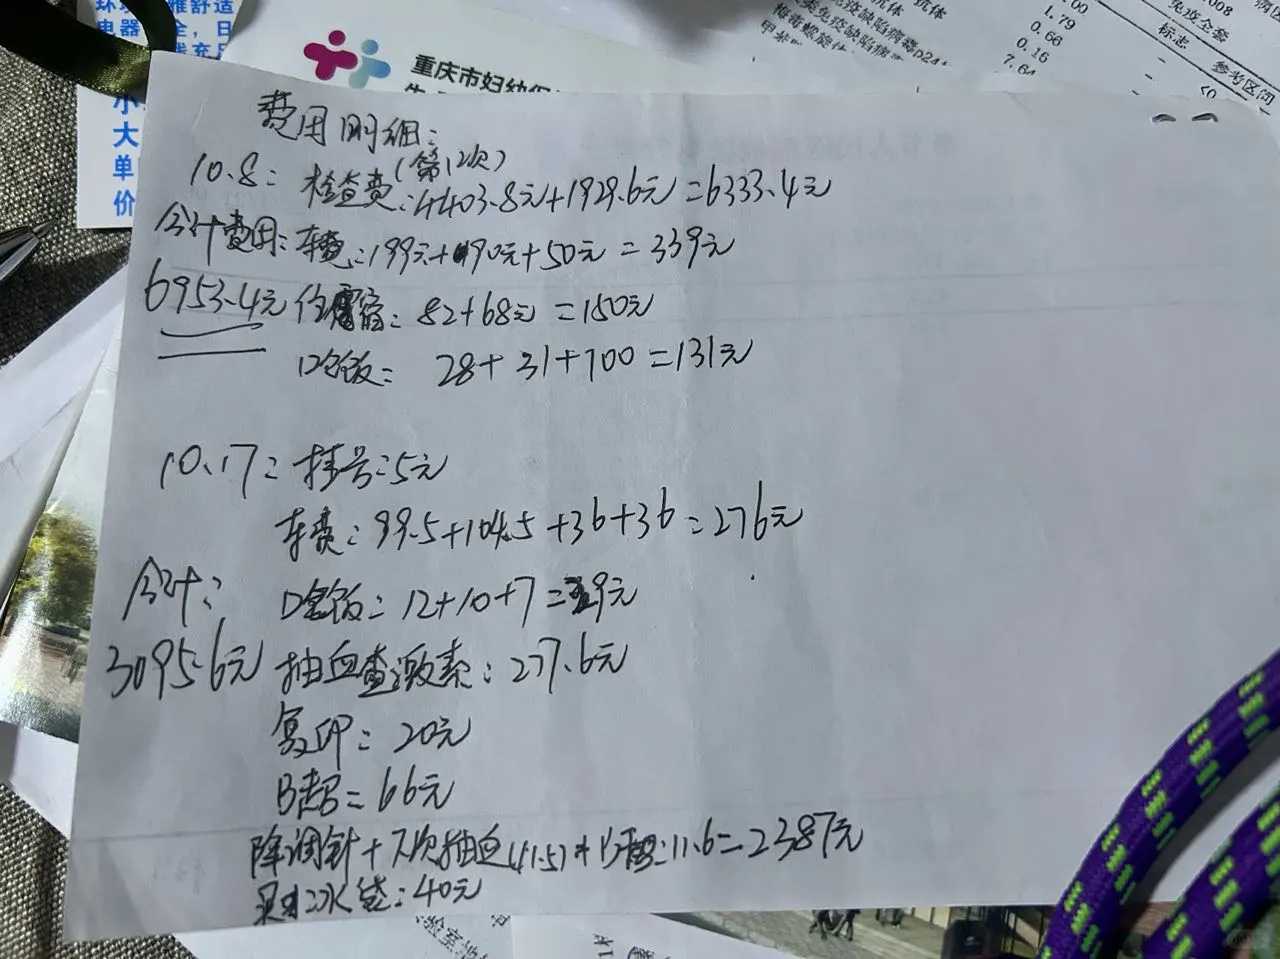 重庆市妇幼保
抗体
1.79
0.66
0.16
7.64
.008
免疫全套
标志
参考区间
<0
电器
小
大
单
价
费用明细:
(第1次)
10.8: 检查费:4403.8元+1929.6元=6333.4元
合计费用: 车费:199元+90元+50元=339元
6953.4元 住宿: 82+68元=150元
口饭: 28+31+100=131元
10.17: 挂号:5元
车费:99.5+104.5+36+36=276元
合计: 口饭:12+10+7=29元
3095.6元 抽血查激素:277.6元
复印:20元
B超=66元
降调针+下次抽血(41.5)+:11.6=2387元
冰袋:40元